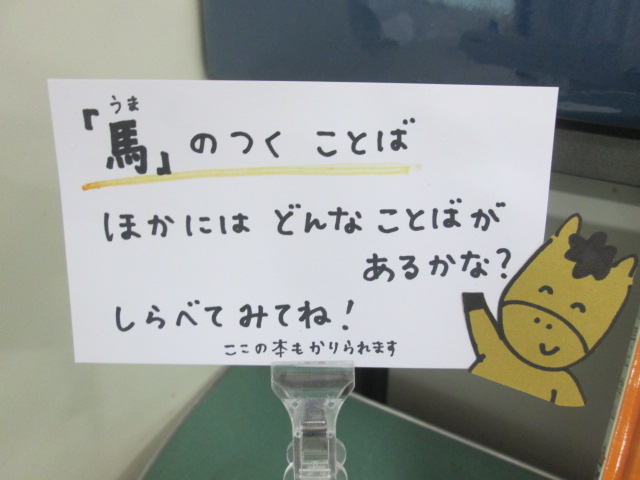 『馬』のつくことば
うま
ほかには どんなことばが
あるかな?
しらべてみてね!
ここの本もかりられます